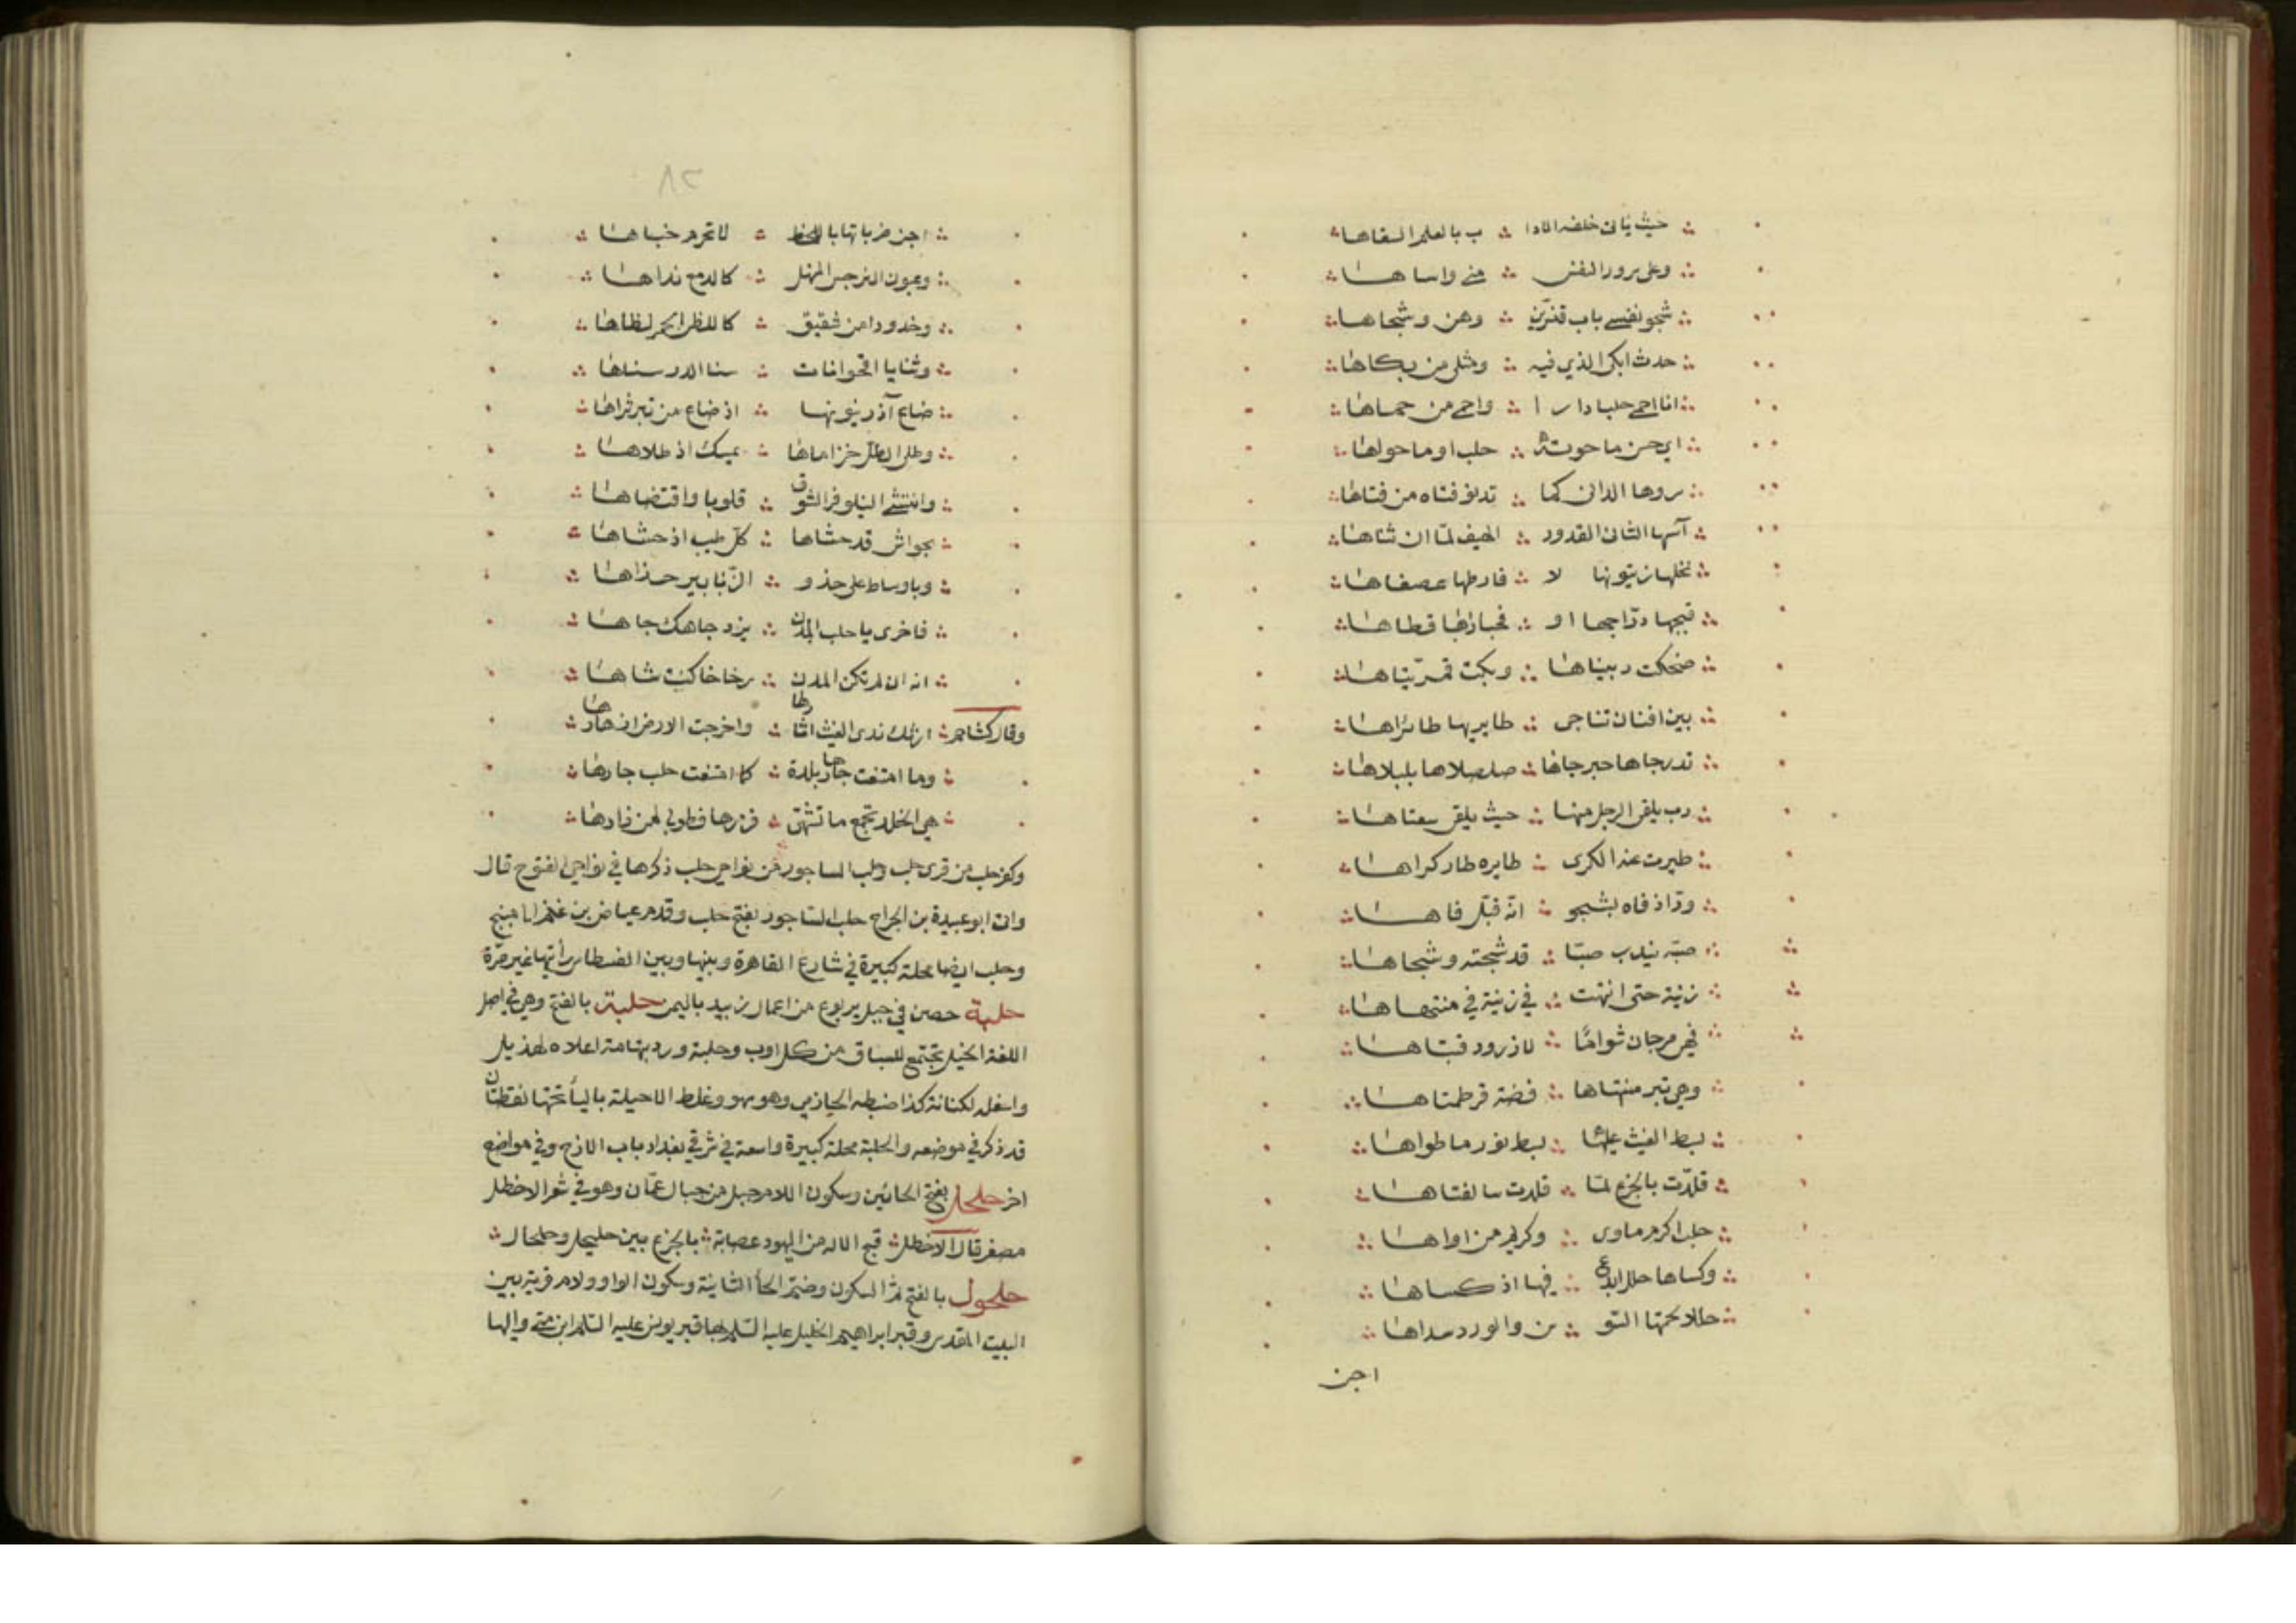 حيث ياتي خلفه الادا ب بالعلم السفاها
وعلى برور النفس مني واساها
شجو نفسي باب قنسرين وهن وشجاها
حدث ابكى الذي فيه ومثلي من بكاها
انا احمى حلبا دارا واحمى من حماها
اي حسن ما حوته حلب او ما حواها
سروها الداني كما تدنو فتاه من فتاها
آسها الثاني القدود الهيف لما ان ثناها
نخلها زيتونها لا فارطها عصفاها
قبجها دراجها او فحباراها قطاها
ضحكت دبيناها وبكت قمريتاها
بين افنان تناجى طايريها طائراها
تدرجاها حبرجاها صلصلاها بلبلاها
رب يلقى الرجل منها حيث يلقى سعتاها
طيرت عنه الكرى طايره طار كراها
ود اذ فاه بشجو انه قبل فاها
صبه يندب صبا قد شجته وشجاها
زينة حتى انتهت في زينة في منتهاها
فهي مرجان شواها لازرود قبتاها
وهي تبر منتهاها فضة قرطمتاها
بسط الغيث عليها بسط نور ما طواها
قلدت بالجزع لما قلدت سالفتاها
حلب اكرم ماوى وكريم من اواها
وكساها حللا ابدع فيها اذ كساها
حللا لحمتها السو سن والورد سداها
اجن
٨٢
اجن خرباتها باللحظ لا تحرم خباها
وعيون النرجس المنهل كالدمع نداها
وخدودا من شقيق كاللظى الحمر لظاها
وثنايا اقحوانات سنا الدر سناها
ضاع آذريونها اذ ضاع من تبر ثراها
وطلى الطل خزاماها بمسك اذ طلاها
وانتشى النيلوفر الشوق قلوبا واقتضاها
بحواش قد حشاها كل طيب اذ حشاها
وباوساط على حذو الزنابير حذاها
فاخري يا حلب المدن يزد جاهك جاها
انه ان لم تكن المدن رخاخا كنت شاها
وقال كشاجم ارتك ندى الغيث اثارها واخرجت الارض ازهارها
وما امتنعت جارها بلدة كما امتنعت حلب جارها
هي الخلد تجمع ما تشتهى فزرها فطوبى لمن زارها
وكفر حلب من قرى حلب وحلب الساجور من نواحي حلب ذكرها في نواحي الفتوح قال
وان ابو عبيدة بن الجراح حلب الساجور بفتح حلب وقدم عياض بن غنم الى منبج
وحلب ايضا محلة كبيرة في شارع القاهرة وبينها وبين الفسطاط رأيتها غير مرة
حلبة حصن في جبل يربوع من اعمال زبيد باليمن حلبة بالفتح وهي في اصل
اللغة الخيل تجتمع للسباق من كل اوب وحلبة ورد بتهامة اعلاه لهذيل
واسفله لكنانة كذا ضبطه الحازمي وهو سهو وغلط الا حيلة باليأ تحتها نقطتان
قد ذكر في موضعه والحلبة محلة كبيرة واسعة في شرقي بغداد باب الازج وفي مواضع
اخر حلحل بفتح الحائين وسكون اللام جبل من جبال عمان وهو في شعر الاخطل
مصغر قال الاخطل قبح الاله من اليهود عصابة بالجزع بين حليحل وحلحال
حلحول بالفتح ثم السكون وضم الحأ الثانية وسكون الواو ولام قرية بين
البيت المقدس وقبر ابراهيم الخليل عليه السلم بها قبر يونس عليه السلم ابن متى واليها